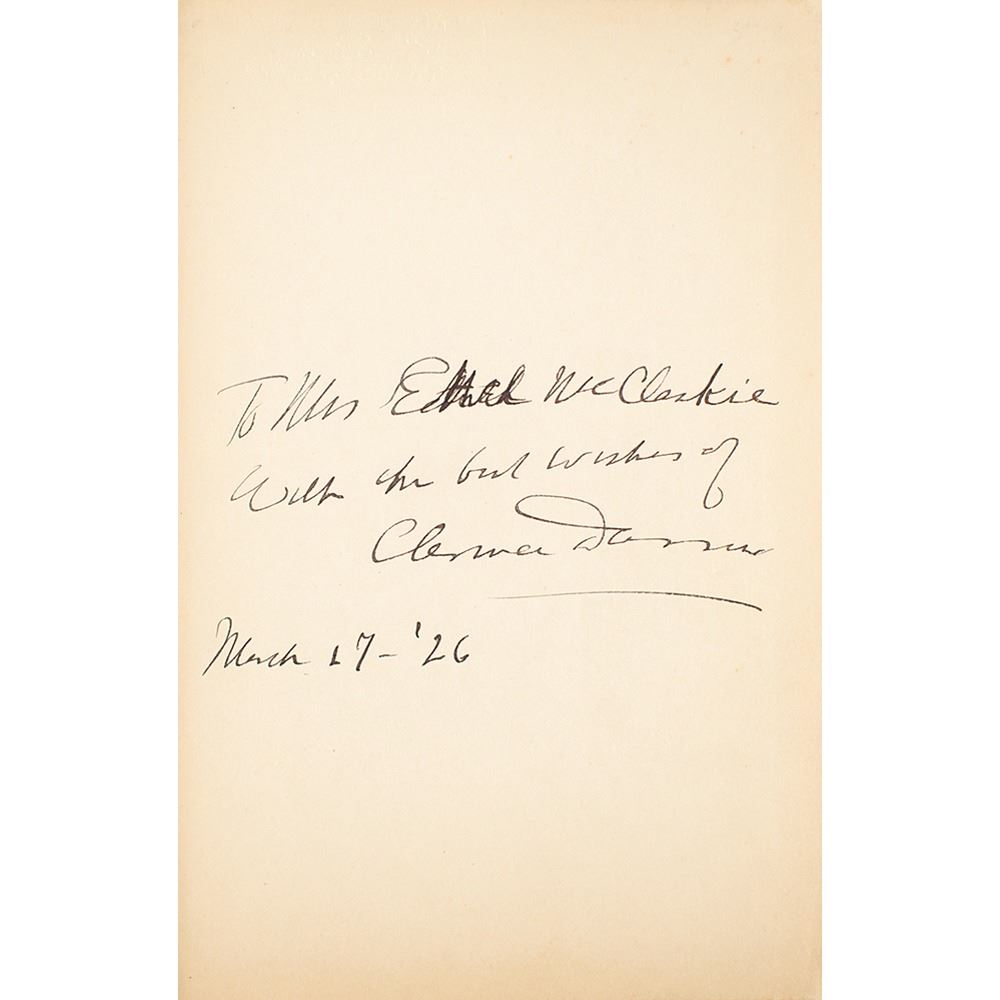 To Mrs Ethel McCleskie
With the best wishes of
Clarence Darrow
March 17 - '26